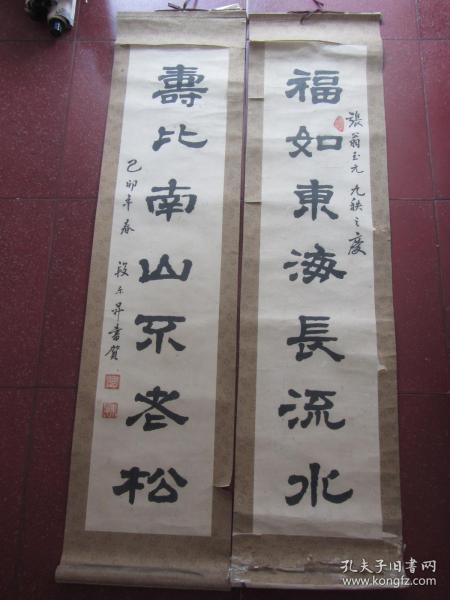 福如東海長流水
張翁玉元九秩之慶
壽比南山不老松
己卯年春
段東昇書賀
孔夫子旧书网
www.kongfz.com